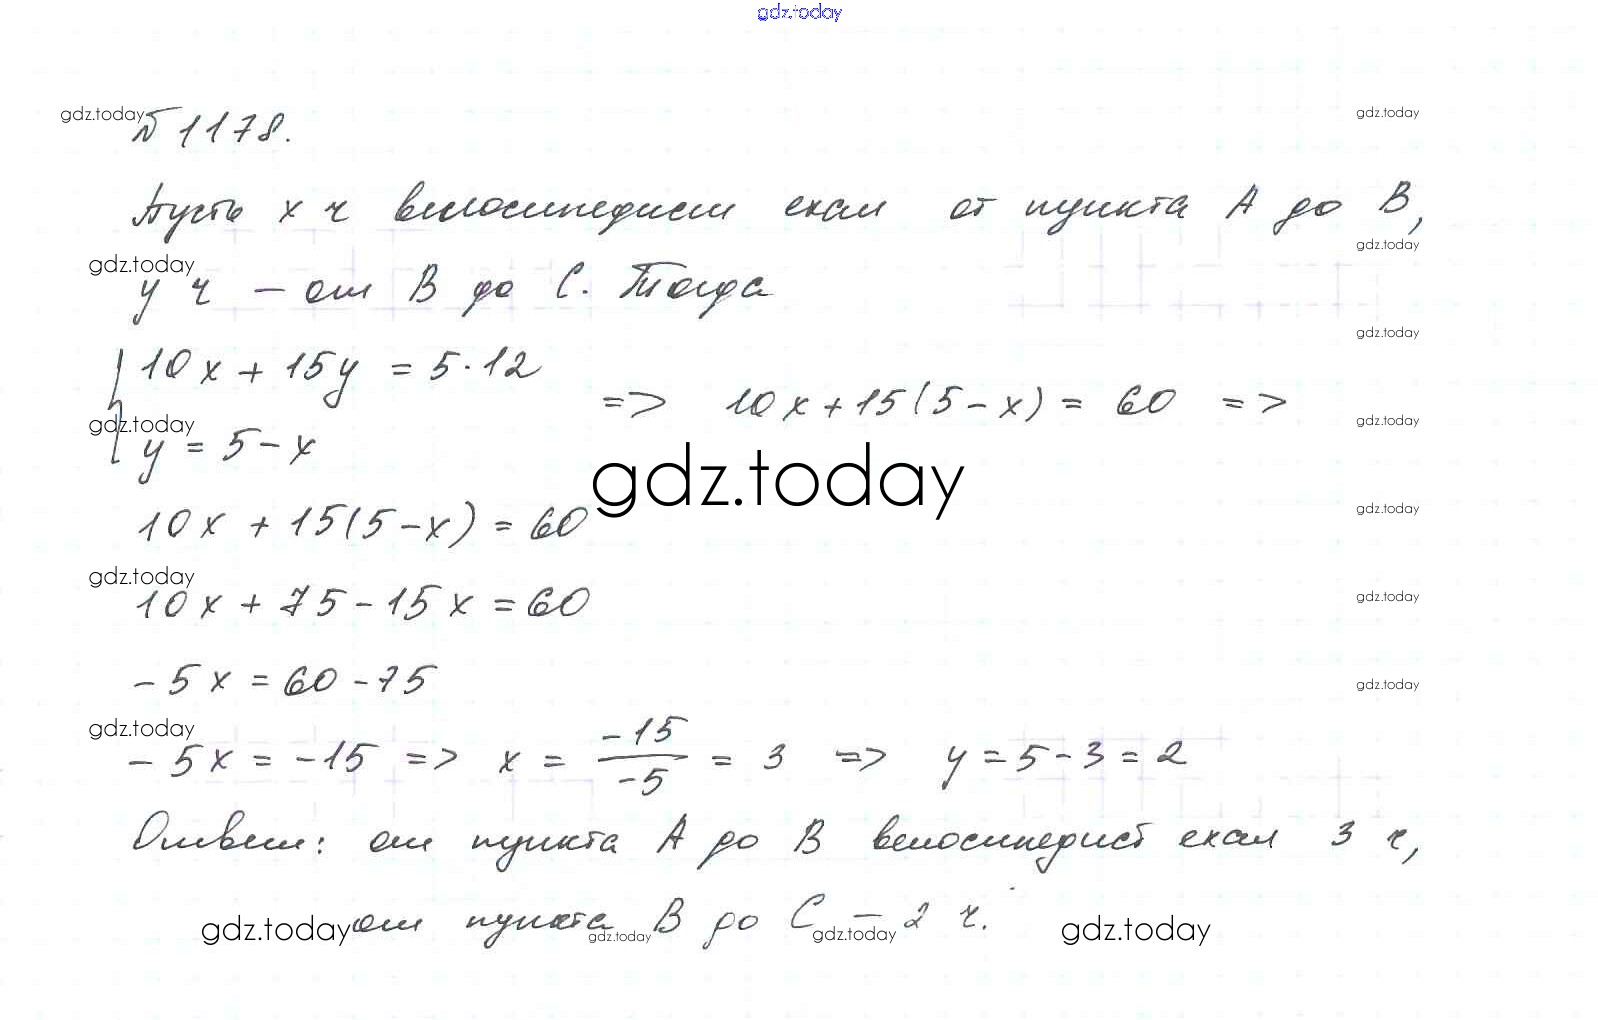 gdz.today
gdz.today
№ 1178.
gdz.today
Пусть x ч велосипедист ехал от пункта А до В,
gdz.today
gdz.today
y ч – от В до С. Тогда
gdz.today
10x + 15y = 5·12
=> 10x + 15(5 – x) = 60 =>
gdz.today
gdz.today
y = 5 – x
gdz.today
10x + 15(5 – x) = 60
gdz.today
gdz.today
10x + 75 – 15x = 60
gdz.today
– 5x = 60 – 75
gdz.today
gdz.today
– 5x = –15 => x = –15/–5 = 3 => y = 5 – 3 = 2
Ответ: от пункта А до В велосипедист ехал 3 ч,
от пункта В до С – 2 ч.
gdz.today gdz.today gdz.today gdz.today